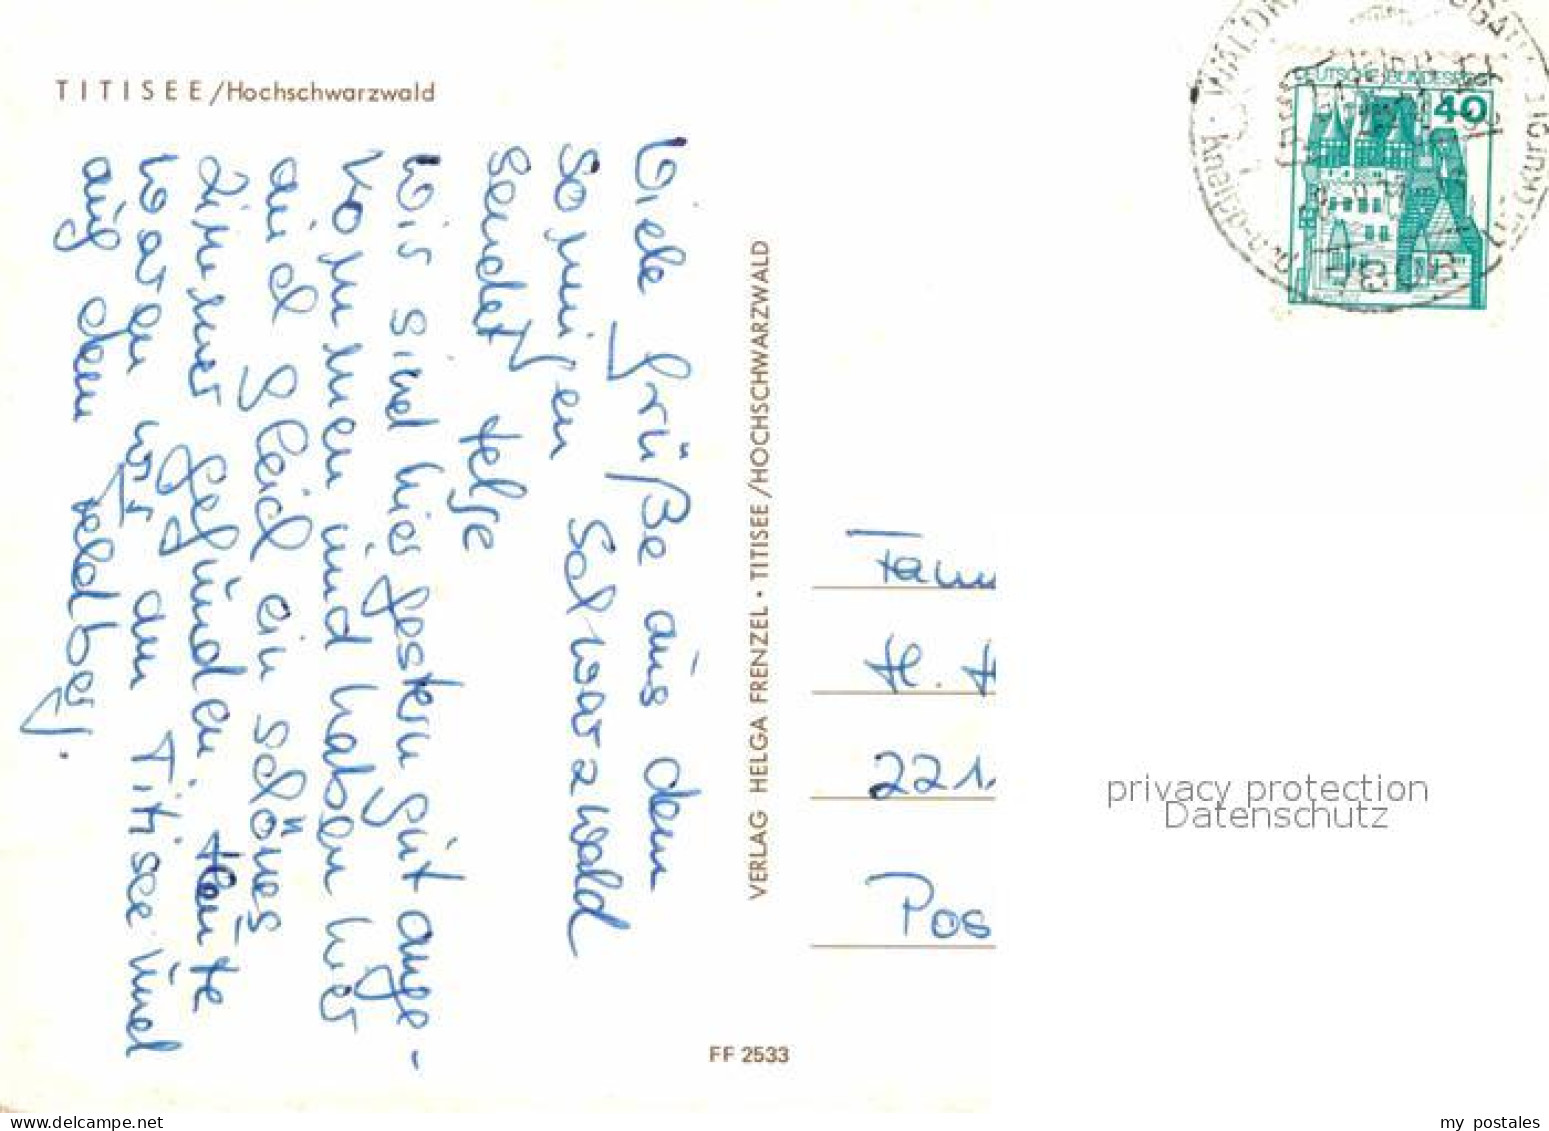 TITISEE/Hochschwarzwald
Viele Grüße aus dem
sonnigen Schwarzwald
sendet Telse
Wir sind hier gestern gut ange-
kommen und haben hier
auch gleich ein schönes
Zimmer gefunden. Heute
waren wir am Titisee und
auf dem Feldberg.
VERLAG HELGA FRENZEL • TITISEE/HOCHSCHWARZWALD
FF 2533
DEUTSCHE BUNDESPOST
40
7808
Fam
H. H
221
Pos
privacy protection
Datenschutz
my postales